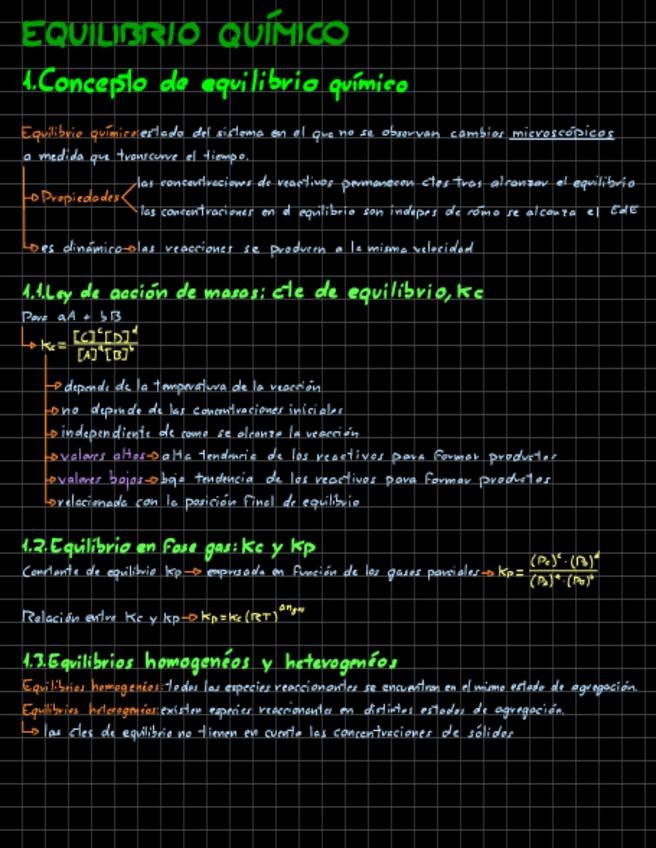 EQUILIBRIO QUÍMICO
1.Concepto de equilibrio químico
Equilibrio químico:estado del sistema en el que no se observan cambios microscópicos
a medida que transcurre el tiempo.
→Propiedades
las concentraciones de reactivos permanecen ctes tras alcanzar el equilibrio
las concentraciones en el equilibrio son indepes de cómo se alcanza el EdE
→es dinámico→las reacciones se producen a la misma velocidad
1.1.Ley de acción de masas: cte de equilibrio, Kc
Para aA + bB
→ Kc = [C]^c [D]^d / [A]^a [B]^b
→depende de la temperatura de la reacción
→no depende de las concentraciones iniciales
→independiente de como se alcanza la reacción
→valores altos→alta tendencia de los reactivos para formar productos
→valores bajos→baja tendencia de los reactivos para formar productos
→relacionada con la posición final de equilibrio
1.2.Equilibrio en fase gas: Kc y Kp
Constante de equilibrio Kp→ expresada en función de los gases parciales→ Kp = (Pc)^c · (PD)^d / (PA)^a · (PB)^b
Relación entre Kc y Kp→ Kp=Kc (RT)^Δngas
1.3.Equilibrios homogenéos y heterogenéos
Equilibrios homogenéos:todas las especies reaccionantes se encuentran en el mismo estado de agregación.
Equilibrios heterogenéos:existen especies reaccionantes en distintos estados de agregación.
→ las ctes de equilibrio no tienen en cuenta las concentraciones de sólidos